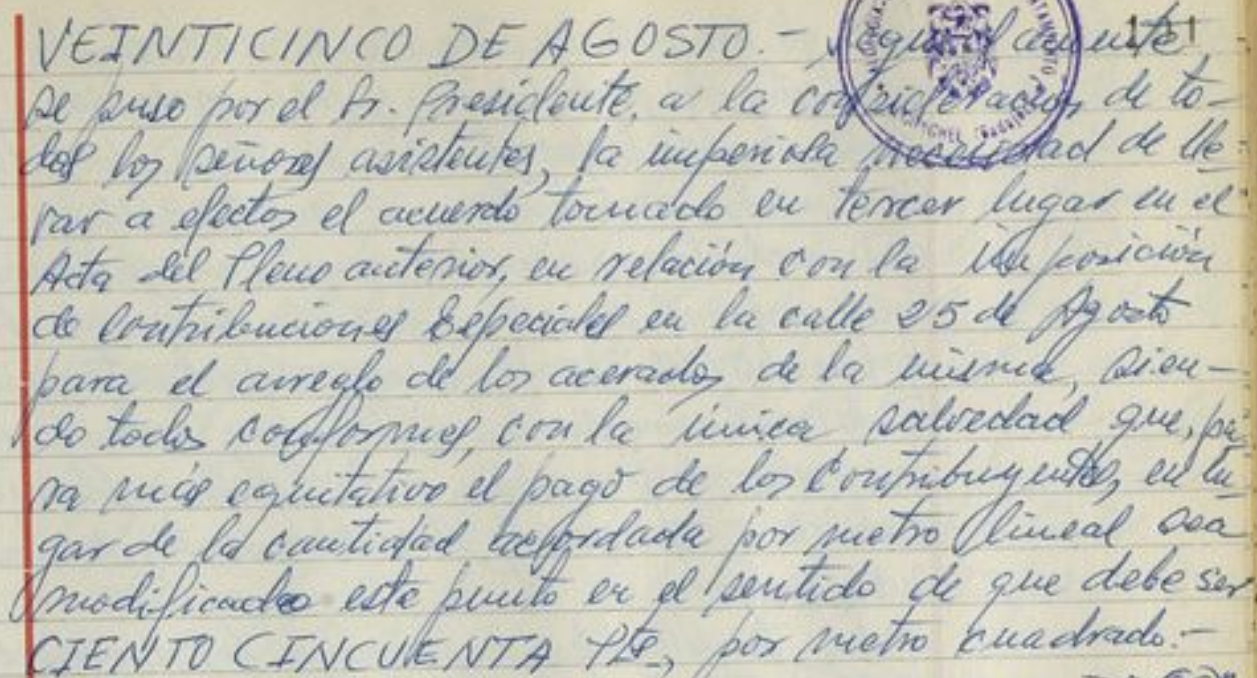 151
VEINTICINCO DE AGOSTO.- Igualmente
se puso por el Sr. Presidente, a la consideración de to-
dos los señores asistentes, la imperiosa necesidad de lle-
var a efectos el acuerdo tomado en tercer lugar en el
Acta del Pleno anterior, en relación con la imposición
de Contribuciones Especiales en la calle 25 de Agosto
para el arreglo de los acerados de la misma, sien-
do todos conformes, con la única salvedad que, pa-
ra más equitativo el pago de los Contribuyentes, en lu-
gar de la cantidad acordada por metro lineal sea
modificado este punto en el sentido de que debe ser
CIENTO CINCUENTA PTS, por metro cuadrado.-